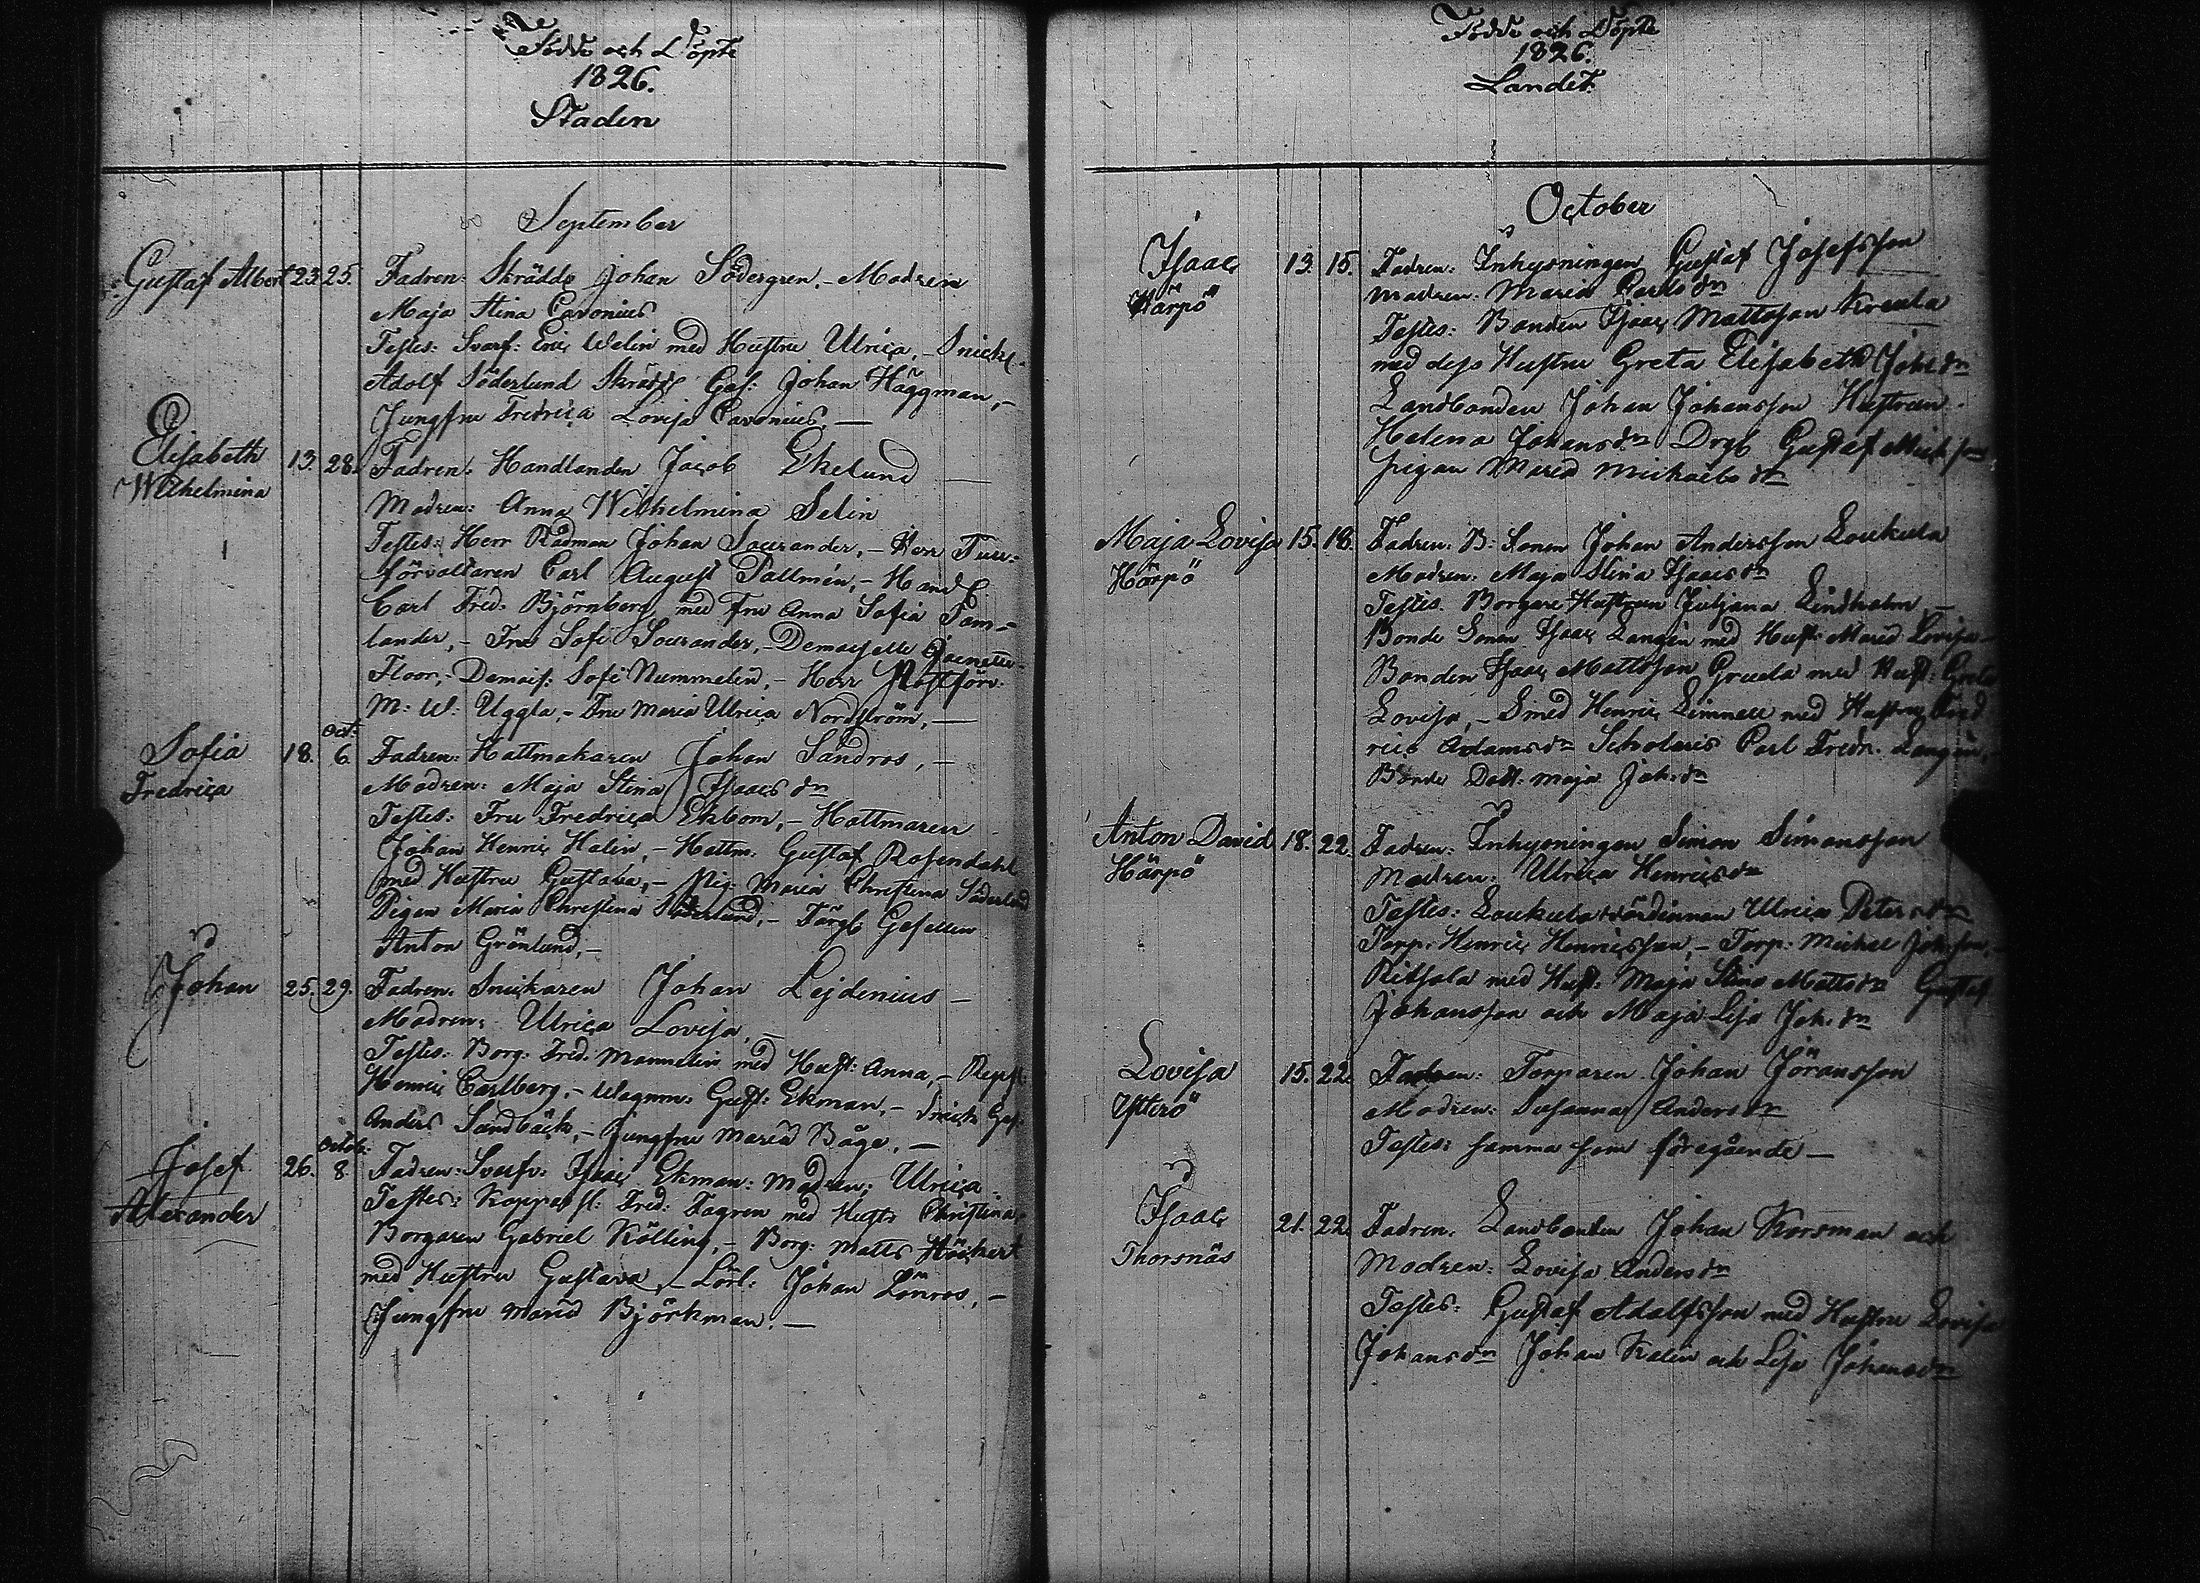 Födde och Döpte
1826.
Staden
September
Gustaf Albert 23. 25. Fadren: Skrädd: Johan Södergren, - Modren
Maja Stina Cavonius
Testes: Svarf: Eric Welin med Hustru Ulrica, - Snick:
Adolf Söderlund Skrädd: Ges: Johan Häggman, -
Jungfru Fredrica Lovisa Cavonius, -
Elisabeth Wilhelmina 13. 28. Fadren: Handlanden Jacob Ekelund
Modren: Anna Wilhelmina Selin
Testes: Herr Rådman Johan Sourander, - Herr Tull-
förvaltaren Carl August Tallmén, - Handl.
Carl Fred: Björnberg med Fru Anna Sofia Tam-
lander, - Fru Sofi Sourander, - Demoiselle Jacnette
Floor, - Demois: Sofi Nummelin, - Herr Postförv:
M: W: Uggla, - Fru Maria Ulrica Nordström, -
Sofia Fredrica 18. Oct: 6. Fadren: Hattmakaren Johan Sandros, -
Modren: Maja Stina Isaacs dr
Testes: Fru Fredrica Ekbom, - Hattmaren
Johan Henric Halin, - Hattm: Gustaf Rosendahl
med Hustru Gustava, - Pig: Maria Christina Söderlund
Pigan Maria Christina Söderlund, - Färgb Gesellen
Anton Grönlund, -
Johan 25. 29. Fadren: Snickaren Johan Lejdenius -
Modren: Ulrica Lovisa, -
Testes: Borg: Fred: Mannelin med Hust: Anna, - Repsl:
Henric Carlberg, - Wagnm: Gust: Ekman, - Snick: Ges:
Anders Sandbäck, - Jungfru Maria Båge, -
Josef Alexander 26. Octob: 8 Fadren: Svarfv: Isaac Ekman: Modren: Ulrica
Testes: Kopparsl: Fred: Fagren med Hustr Christina,
Borgaren Gabriel Kölling, - Borg: Matts Höckert
med Hustru Gustava, - Lärl: Johan Lönros, -
Jungfru Maria Björkman. -
Födde och Döpte
1826.
Landet.
October
Isaac 13. 15. Fadren: Inhysningen Gustaf Josefsson
Härpö Modren: Maria Carls dr
Testes: Bonden Isaac Mattsson Kreula
med dess Hustru Greta Elisabeth Joh: dr
Landbonden Johan Johansson Hustrun
Helena Johans dr Drg Gustaf Mich son
pigan Maria Michaels dr
Maja Lovisa 15. 18. Fadren: B: Sonen Johan Andersson Loukula
Härpö Modren: Maja Stina Isaacs dr
Testes. Borgare Hustrun Juljana Lindholm
Bonde Sonen Isaac Langén med Hust: Maria Lovisa -
Bonden Isaac Mattsson Greula med Hust: Greta
Lovisa, - Smed Henric Limnell med Hustru Fred
rica Adams dr Scholaris Carl Fredr. Langén,
Bonde Dott: Maja Joh: dr
Anton David 18. 22. Fadren: Inhysningen Simon Simonsson
Härpö Modren: Ulrica Henrics dr
Testes: Loukula Wärdinnan Ulrica Peters dr
Torp: Henric Henricsson, - Torp: Michel Johsson, -
Ritsala med Hust: Maja Stina Matts dr Gustaf
Johansson och Maja Lisa Joh: dr
Lovisa 15. 22. Fadren: Torparen Johan Jöransson
Ytterö Modren: Susanna Anders dr
Testes: samma som föregående -
Isaac 21. 22. Fadren: Landbonden Johan Korsman och
Thorsnäs Modren: Lovisa Anders dr
Testes: Gustaf Adolfsson med Hustru Lovisa
Johans dr Johan Kalin och Lisa Johans dr